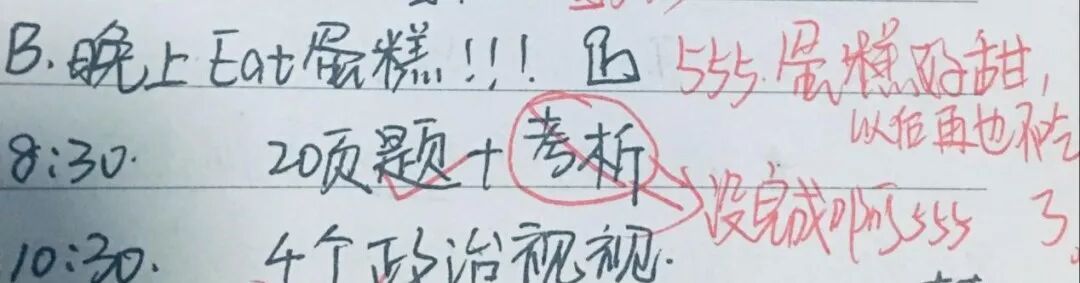 B. 晚上 Eat 蛋糕!!! 555. 蛋糕好甜,
以后再也不吃了
8:30. 20页题 + 考析
没完成啊555
10:30. 4个政治视视.